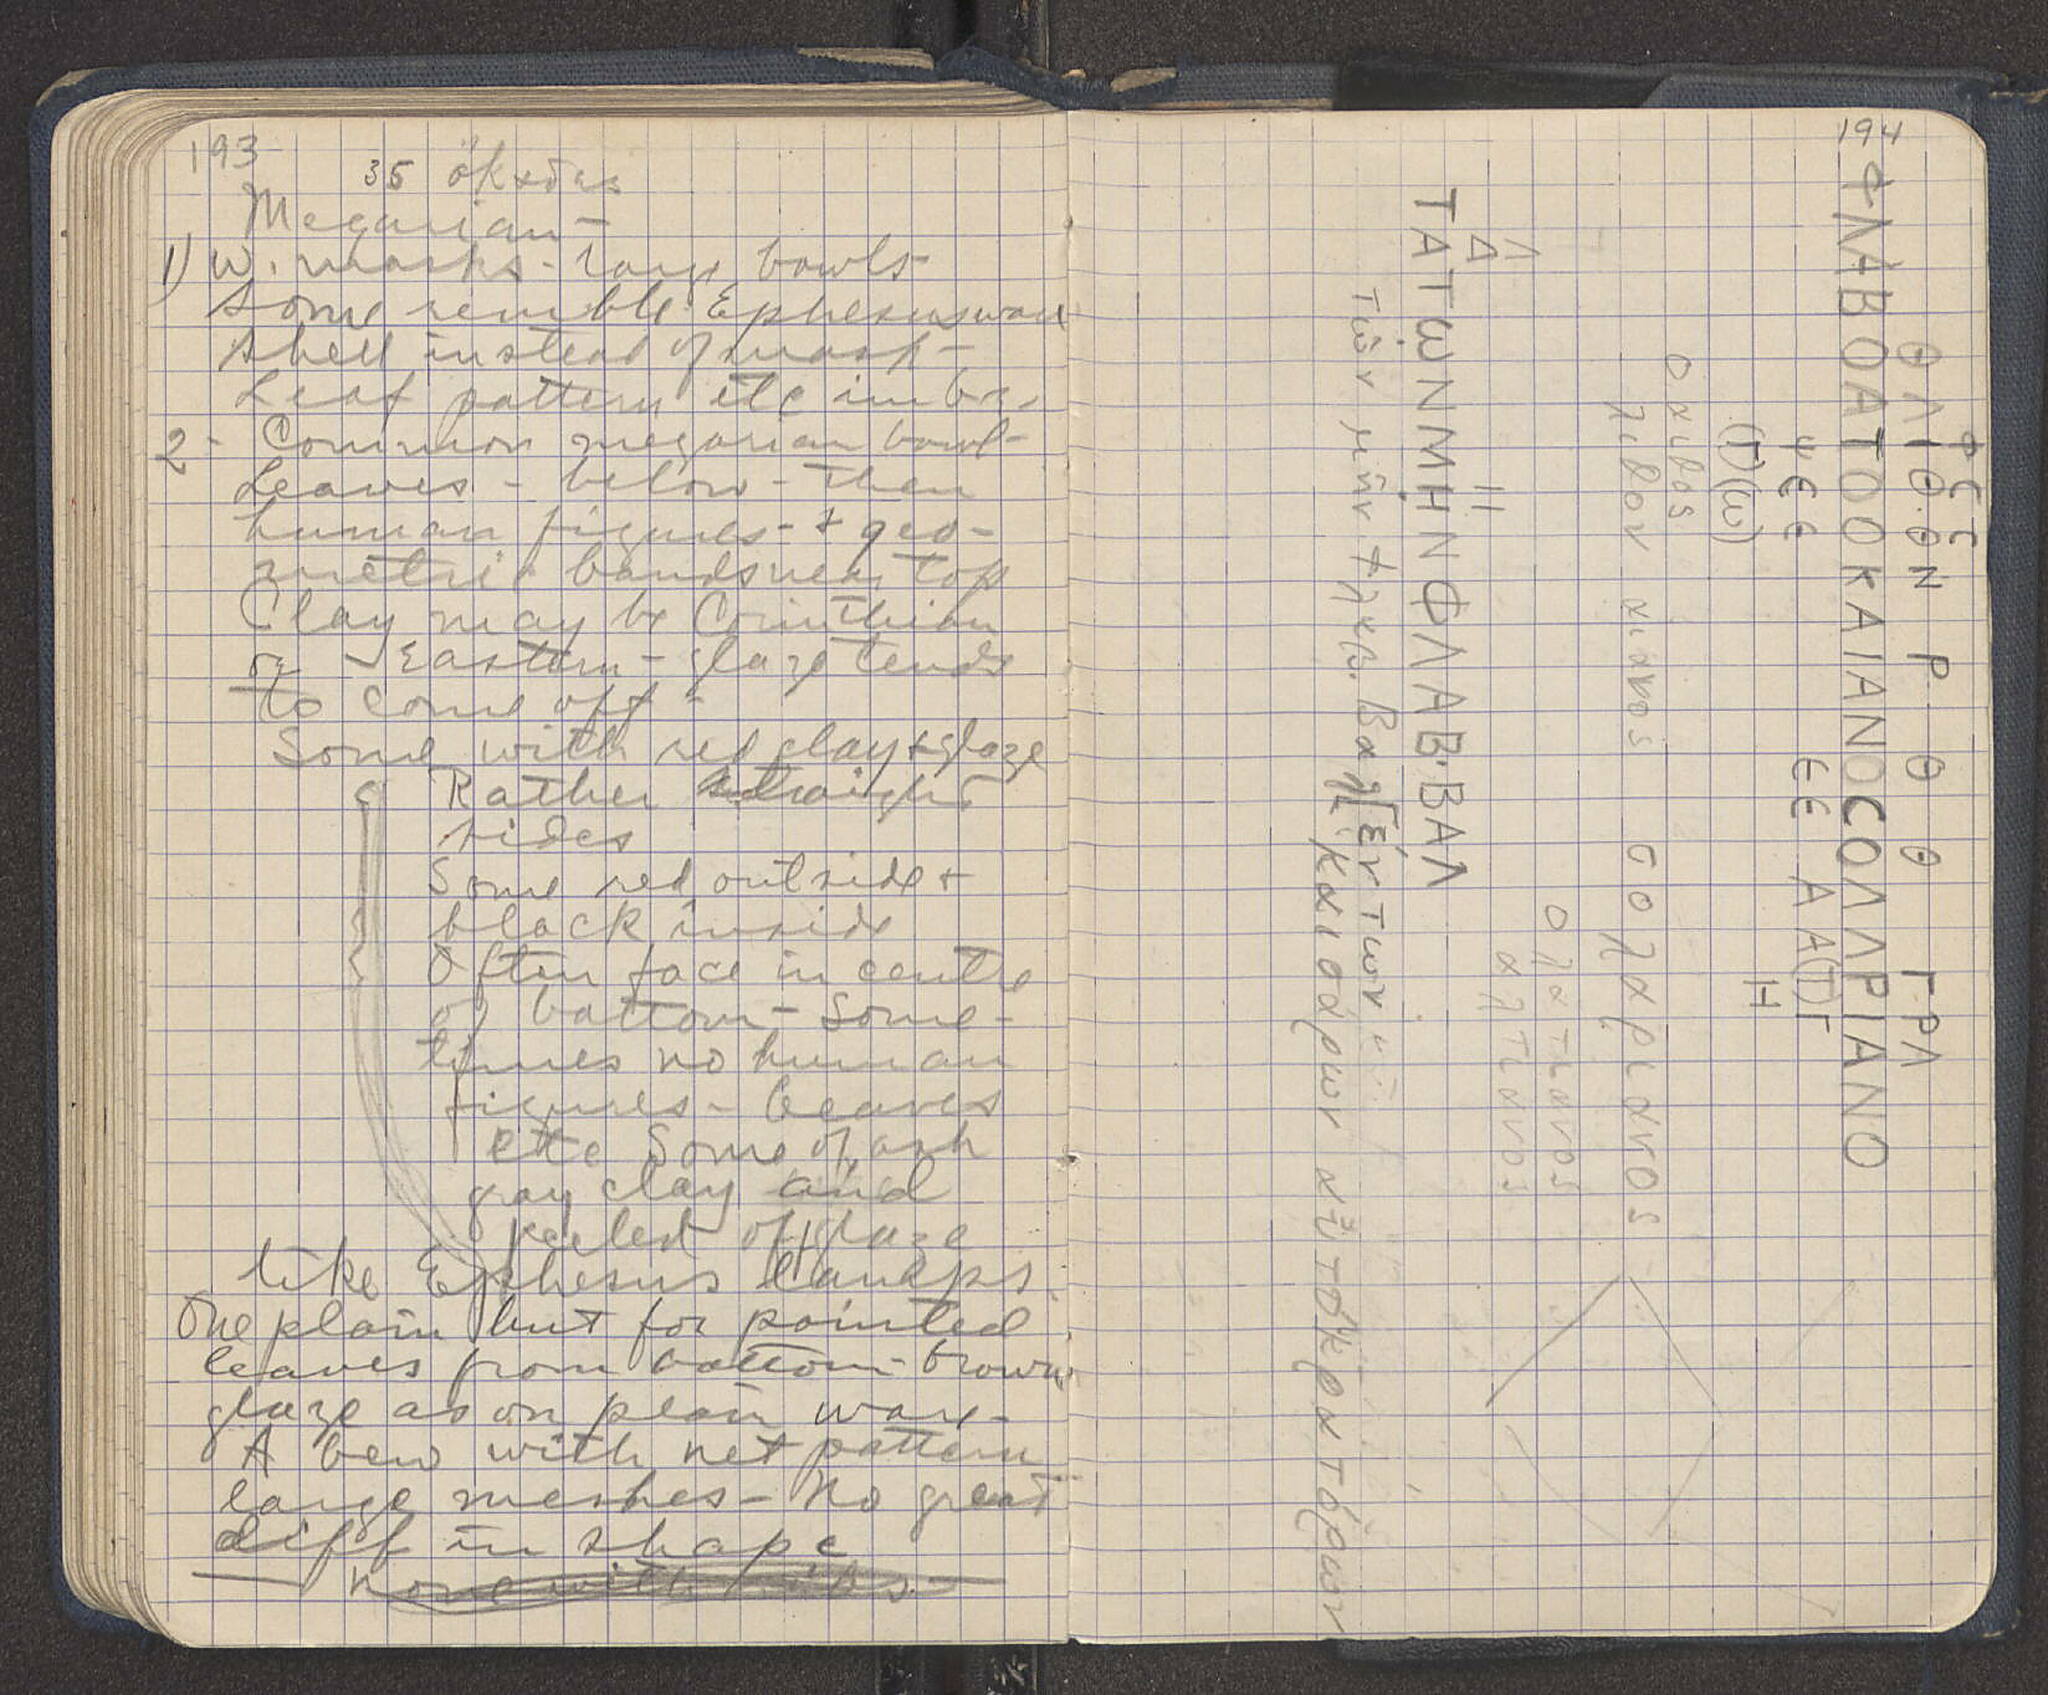 193
35 ὀκάδες
Megarian –
1) w. masks - large bowls
some resemble Ephesus ware
shell instead of mask -
Leaf pattern etc in bz.
2 - Common megarian bowl -
Leaves - below - then
human figures - + geo-
metric bands near top
Clay may be Corinthian
or Eastern - glaze tends
to come off -
Some with red clay + glaze
Rather straight
sides
Some red outside +
black inside
Often face in centre
of bottom - Some-
times no human
figures - leaves
etc Some of ash
gray clay and
peeled off glaze
like Ephesus lamps.
One plain but for pointed
leaves from bottom - brown
glaze as on plain ware -
A few with net pattern
large meshes - No great
diff in shape
None with ribs -
194
ΦΕΤ
ΘΛΙΘ.ΘΝ Ρ Θ Θ ΓΡΛ
ΦΛΑΒΟΑΤΟΟΚΑΙΑΝΟCΟΛΛΡΙΑΝΟ
ΨΕΕ ΕΕ Α Α(Τ)Γ
(Τ)(ω) Η
σολαριανος
ολατιανος
αλτιανος
Δ Λ
ΤΑΤωΝΜΗΝΦΛΑΒ.ΒΑΛ
τῶν μὲν Φλαβ. Βαλεντων
καισάρων αὐτοκρατόρων